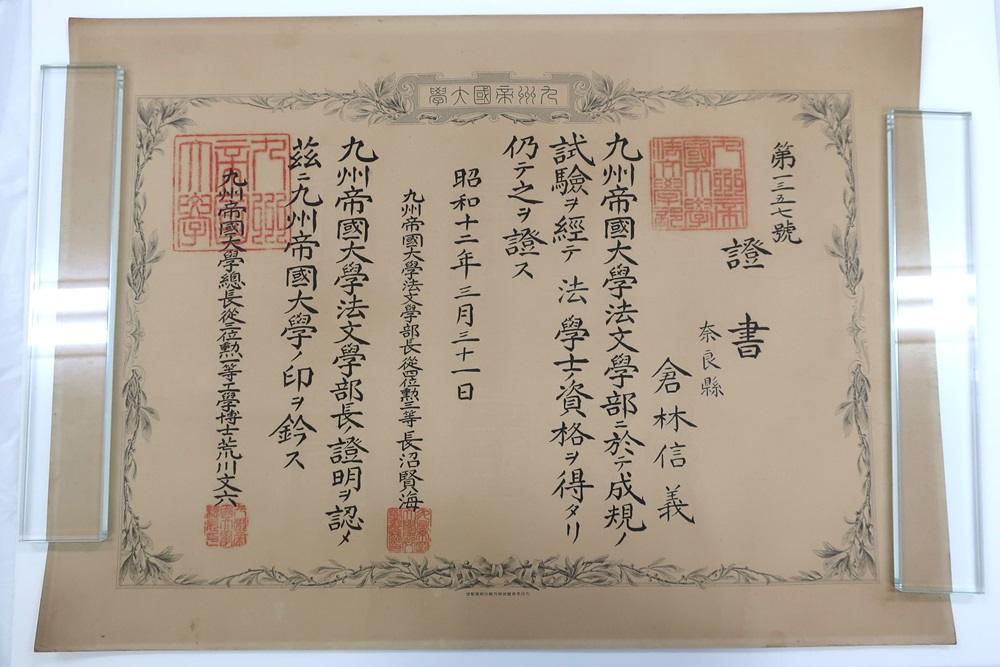 九州帝國大學
第一三五七號
證書
奈良縣
倉林信義
九州帝國大學法文學部ニ於テ成規ノ
試驗ヲ經テ法學士ノ資格ヲ得タリ
仍テ之ヲ證ス
昭和十二年三月三十一日
九州帝國大學法文學部長從四位勲三等長沼賢海
九州帝國大學法文學部長ノ證明ヲ認メ
茲ニ九州帝國大學ノ印ヲ鈐ス
九州帝國大學總長從三位勲一等工學博士荒川文六
九州帝國大學